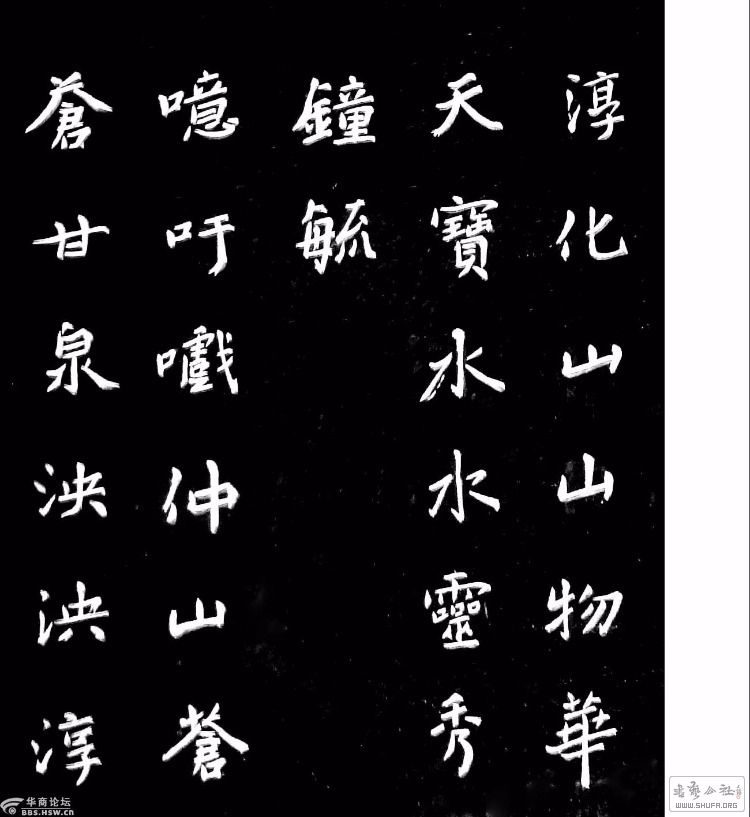 淳化山山物華
天寶水水靈秀
鐘毓
噫吁嚱仲山蒼
蒼甘泉泱泱淳
华商论坛
BBS.HSW.CN
WWW.SHUFA.ORG